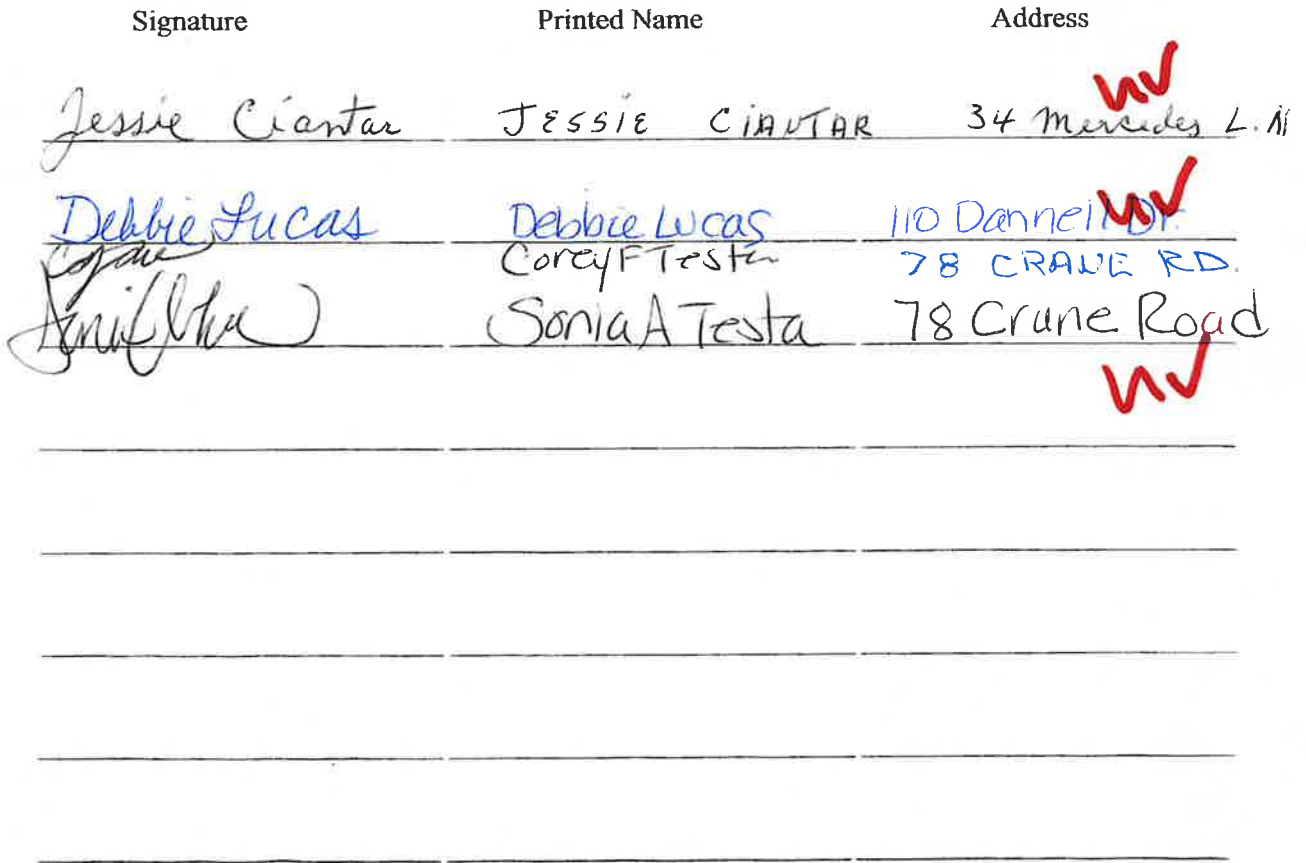 Signature Printed Name Address
Jessie Ciantar JESSIE CIANTAR 34 Mercedes LN
nv
Debbie Lucas Debbie Lucas 110 Dannell Dr.
nv
Corey F Testa 78 CRANE RD.
Sonia A Testa 78 Crane Road
nv